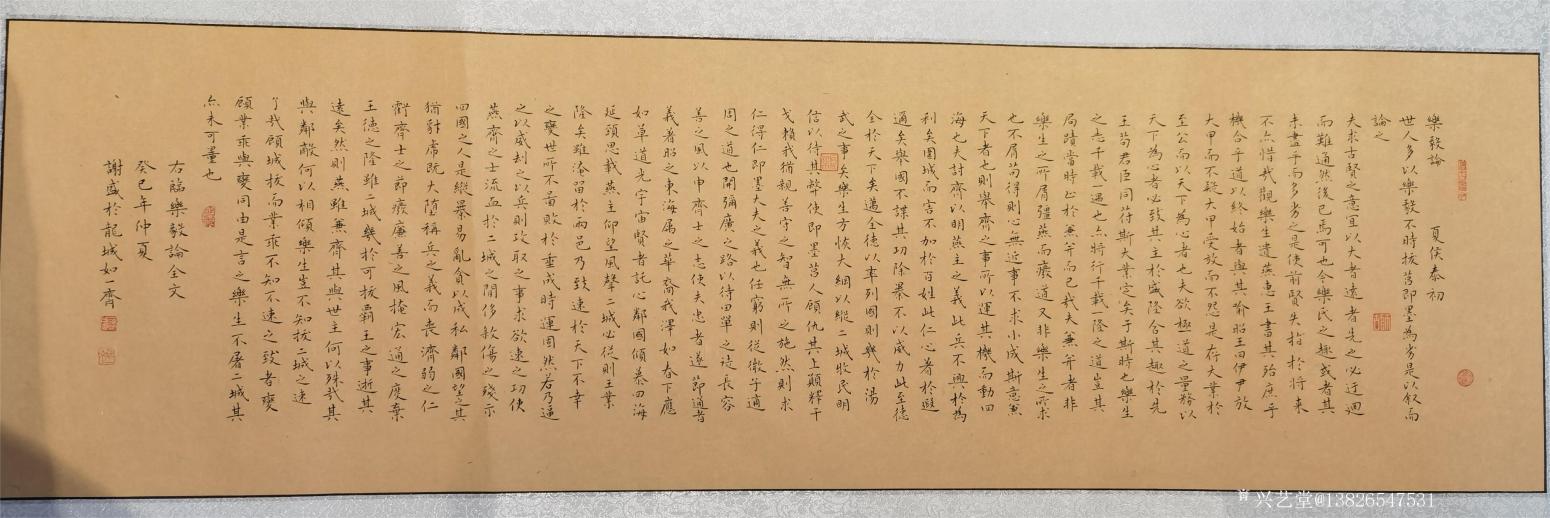 樂毅論　夏侯泰初
世人多以樂毅不時拔莒即墨為劣是以叙而
論之
夫求古賢之意宜以大者遠者先之必迂迴
而難通然後已焉可也今樂氏之趣或者其
未盡乎而多劣之是使前賢失指於將来
不亦惜哉觀樂生遺燕惠王書其殆庶乎
機合乎道以終始者與其喻昭王曰伊尹放
大甲而不疑大甲受放而不怨是存大業於
至公而以天下為心者也夫欲極道之量務以
天下為心者必致其主於盛隆合其趣於先
王苟君臣同符斯大業定矣于斯時也樂生
之志千載一遇也亦將行千載一隆之道豈其
局蹟當時止於兼并而已哉夫兼并者非
樂生之所屑彊燕而癈道又非樂生之所求
也不屑苟得則心無近事不求小成斯意兼
天下者也則舉齊之事所以運其機而動四
海也夫討齊以明燕主之義此兵不興於為
利矣圍城而害不加於百姓此仁心著於遐
邇矣舉國不謀其功除暴不以威力此至德
全於天下矣邁全德以率列國則幾於湯
武之事矣樂生方恢大綱以縱二城牧民明
信以待其弊使即墨莒人顧仇其上願釋干
戈賴我猶親善守之智無所之施然則求
仁得仁即墨大夫之義也任窮則從微子適
周之道也開彌廣之路以待田單之徒長容
善之風以申齊士之志使夫忠者遂節通者
義著昭之東海属之華裔我澤如春下應
如草道光宇宙賢者託心鄰國傾慕四海
延頸思戴燕主仰望風聲二城必從則王業
隆矣雖淹留於兩邑乃致速於天下不幸
之變世所不圖敗於垂成時運固然若乃逼
之以威刼之以兵則攻取之事求欲速之功使
燕齊之士流血於二城之間侈殺傷之殘示
四國之人是縱暴易亂貪以成私鄰國望之其
猶豺虎既大墮稱兵之義而喪濟弱之仁
虧齊士之節癈廉善之風掩宏通之度棄
王德之隆雖二城幾於可拔霸王之事逝其
遠矣然則燕雖兼齊其與世主何以殊哉其
與鄰敵何以相傾樂生豈不知拔二城之速
了哉顧城拔而業乖不知不速之致者變
顧業乖與變同由是言之樂生不屠二城其
亦未可量也
右臨樂毅論全文
癸巳年仲夏
謝盛於龍城如一齋
兴艺堂@13826547531